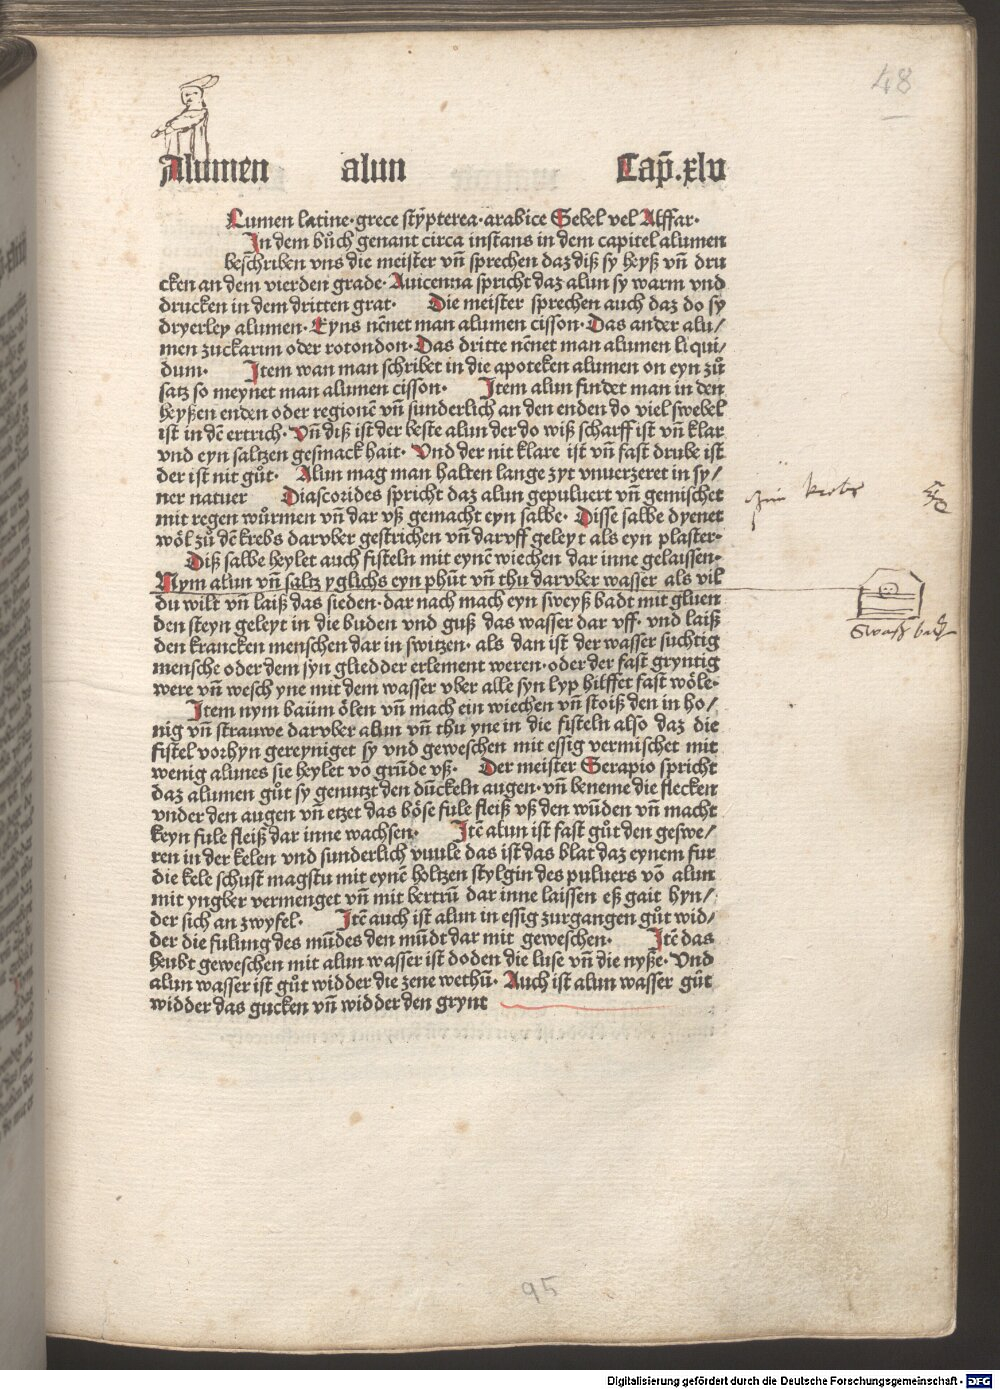 48
Alumen alun Cap̄.xlv
Lumen latine·grece stypterea·arabice Gebel vel Affar·
In dem bůch genant circa instans in dem capitel alumen
beschriben vns die meister vn̄ sprechen daz diß sy heyß vn̄ dru
cken an dem vierden grade· Auicenna spricht daz alun sy warm vnd
drucken in dem dritten grat· Die meister sprechen auch daz do sy
dryerley alumen· Eyns nēnet man alumen cisson· Das ander alu/
men zuckarim oder rotondon· Das dritte nēnet man alumen liqui/
dum· Item wan man schribet in die apoteken alumen on eyn zů
satz so meynet man alumen cisson· Item alun findet man in den
heyßen enden oder regionē vn̄ sunderlich an den enden do viel swebel
ist in dē ertrich· Vn̄ diß ist der beste alun der do wiß scharff ist vn̄ klar
vnd eyn saltzen gesmack hait· Vnd der nit klare ist vn̄ fast drube ist
der ist nit gůt· Alun mag man halten lange zyt vnuerzeret in sy/
ner natuer Diascorides spricht daz alun gepuluert vn̄ gemischet
mit regen wůrmen vn̄ dar vß gemacht eyn salbe· Disse salbe dyenet
wöl zů dē krebs daruber gestrichen vn̄ daruff geleyt als eyn plaster·
Diß salbe heylet auch fisteln mit eynē wiechen dar inne gelaissen·
Nym alun vn̄ saltz yglichs eyn phūt vn̄ thu daruber wasser als vil
du wilt vn̄ laiß das sieden· dar nach mach eyn sweyß badt mit gluen
den steyn geleyt in die buden vnd guß das wasser dar vff· vnd laiß
den krancken menschen dar in switzen· als dan ist der wasser suchtig
mensche oder dem syn glied der erlement weren· oder der fast gryntig
were vn̄ wesch yne mit dem wasser vber alle syn lyp hilffet fast wöle·
Item nym baüm ölen vn̄ mach ein wiechen vn̄ stoiß den in ho/
nig vn̄ strauwe daruber alun vn̄ thu yne in die fisteln also daz die
fistel vorhyn gereyniget sy vnd geweschen mit essig vermischet mit
wenig alunes sie heylet vō grūde vß· Der meister Serapio spricht
daz alumen gůt sy genutzt den dūckeln augen· vn̄ beneme die flecken
vnder den augen vn̄ etzet das böse fule fleiß vß den wūden vn̄ macht
keyn fule fleiß dar inne wachsen· Itē alun ist fast gůt den geswe/
ren in der kelen vnd sunderlich vuule das ist das blat daz eynem fur
die kele schust magstu mit eynē holtzen stylgin des puluers vō alun
mit yngber vermenget vn̄ mit bertrū dar inne laissen eß gait hyn/
der sich an zwyfel· Itē auch ist alun in essig zurgangen gůt wid/
der die fulung des mūdes den mūdt dar mit geweschen· Itē das
heubt geweschen mit alun wasser ist doden die luse vn̄ die nyße· Vnd
alun wasser ist gůt widder die zene wethū· Auch ist alun wasser gůt
widder das gucken vn̄ widder den grynt
krebs
95
Digitalisierung gefördert durch die Deutsche Forschungsgemeinschaft · DFG